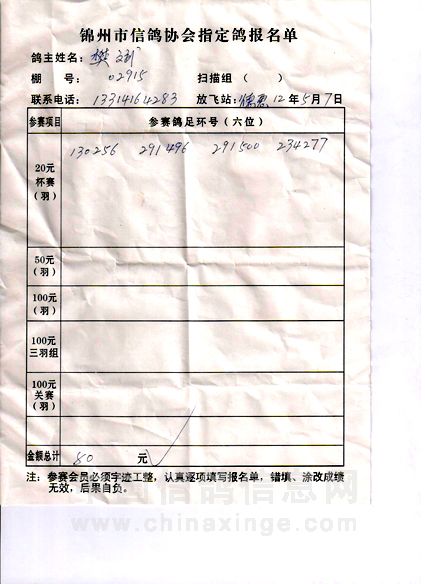 锦州市信鸽协会指定鸽报名单
鸽主姓名：樊斌
棚 号：02915 扫描组（ ）
联系电话：13314164283 放飞站：德惠 12年5月7日
参赛项目 参赛鸽足环号（六位）
20元
杯赛
（羽）
130256 291496 291500 234277
50元
（羽）
100元
（羽）
100元
三羽组
100元
关赛
（羽）
金额总计 80 元
注：参赛会员必须字迹工整，认真逐项填写报名单，错填、涂改成绩
无效，后果自负。
中国信鸽信息网
www.chinaxinge.com